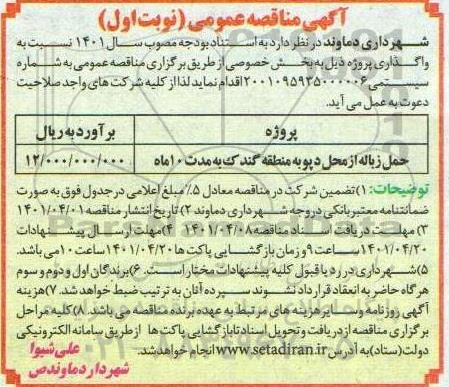 آگهی مناقصه عمومی (نوبت اول)
شهرداری دماوند در نظر دارد به استناد بودجه مصوب سال ۱۴۰۱ نسبت به
واگذاری پروژه ذیل به بخش خصوصی از طریق برگزاری مناقصه عمومی به شماره
سیستمی ۲۰۰۱۰۹۵۹۳۵۰۰۰۰۰۶ اقدام نماید لذا از کلیه شرکت های واجد صلاحیت
دعوت به عمل می آید.
پروژه برآورد به ریال
حمل زباله از محل دپو به منطقه گندک به مدت ۱۰ ماه ۱۲/۰۰۰/۰۰۰/۰۰۰
توضیحات: ۱) تضمین شرکت در مناقصه معادل ۵٪ مبلغ اعلامی در جدول فوق به صورت
ضمانتنامه معتبر بانکی در وجه شهرداری دماوند ۲) تاریخ انتشار مناقصه ۱۴۰۱/۰۴/۰۱
۳) مهلت دریافت اسناد مناقصه ۱۴۰۱/۰۴/۰۸ ۴) مهلت ارسال پیشنهادات
۱۴۰۱/۰۴/۲۰ ساعت ۹ و زمان بازگشایی پاکت ها ۱۴۰۱/۰۴/۲۰ ساعت ۱۰ می باشد.
۵) شهرداری در رد یا قبول کلیه پیشنهادات مختار است. ۶) برندگان اول و دوم و سوم
هرگاه حاضر به انعقاد قرارداد نشوند سپرده آنان به ترتیب ضبط خواهد شد. ۷) هزینه
آگهی روزنامه و سایر هزینه های مرتبط به عهده برنده مناقصه می باشد. ۸) کلیه مراحل
برگزاری مناقصه از دریافت و تحویل اسناد تا بازگشایی پاکت ها از طریق سامانه الکترونیکی
دولت (ستاد) به آدرس www.setadiran.ir انجام خواهد شد.
علی شیوا
شهردار دماوند